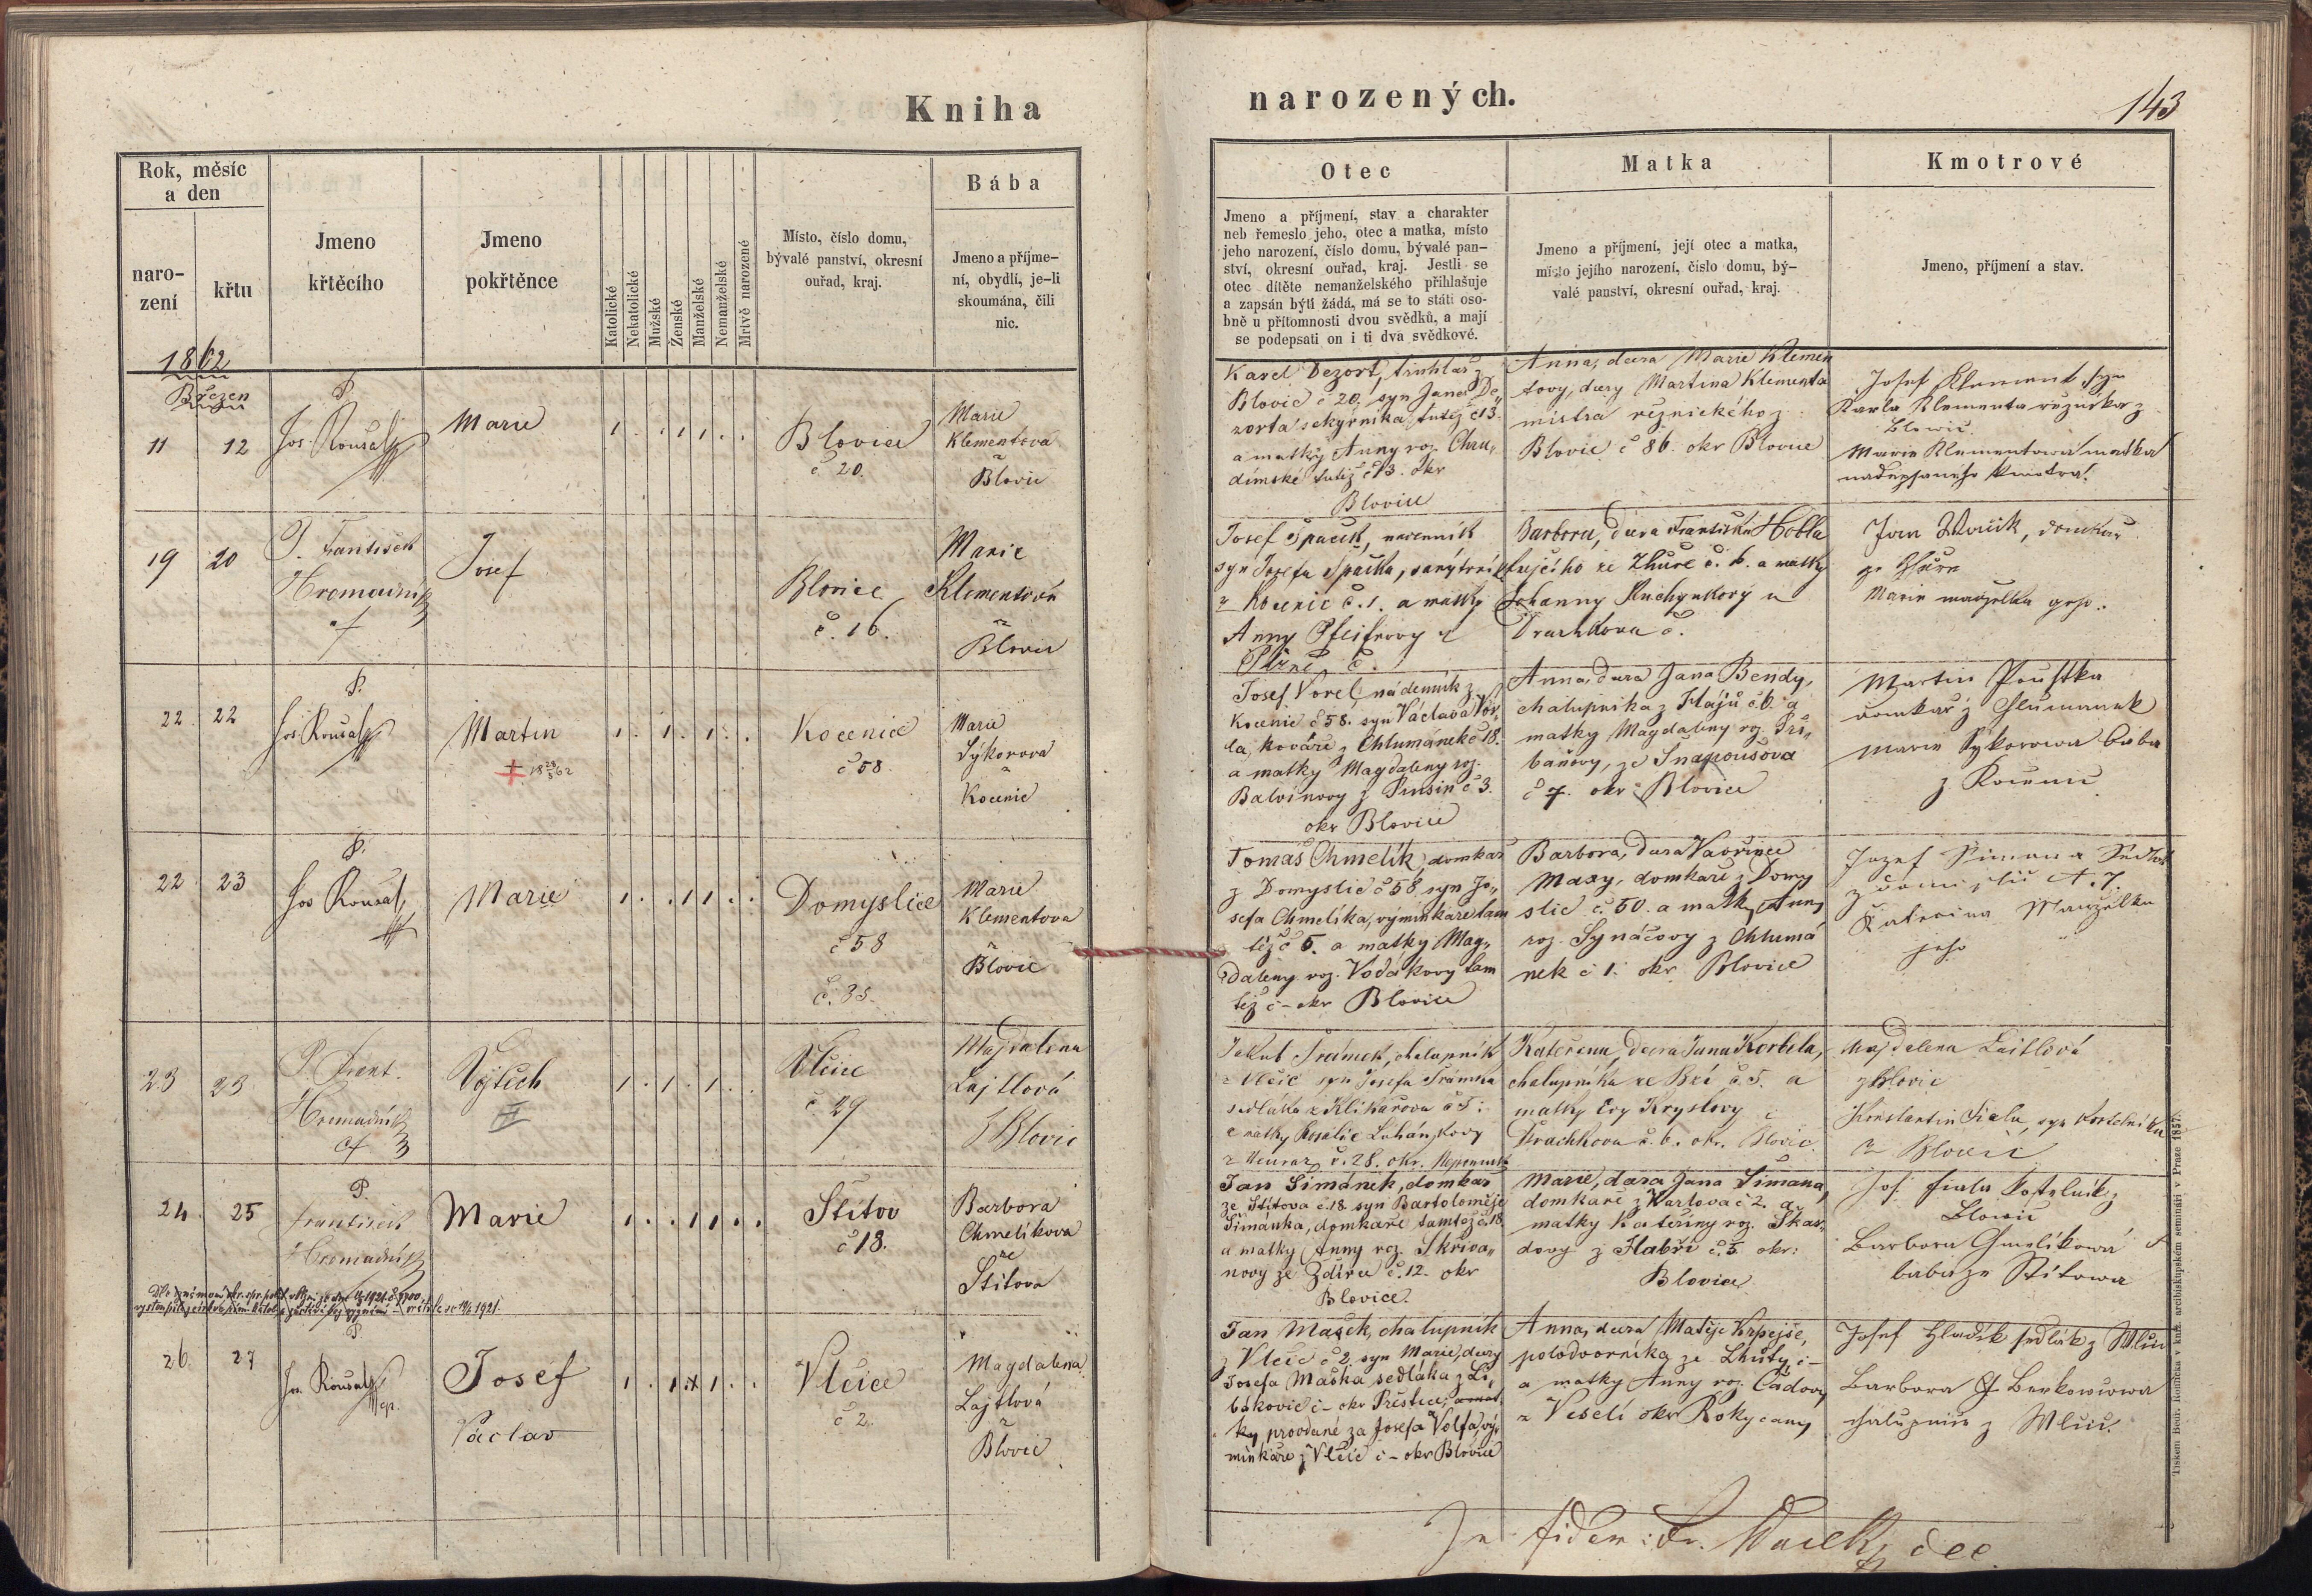 Kniha
narozených.
143
Rok, měsíc
a den
naro-
zení
křtu
Jmeno
křtěcího
Jmeno
pokřtěnce
Katolické
Nekatolické
Mužské
Ženské
Manželské
Nemanželské
Mrtvě narozené
Místo, číslo domu,
bývalé panství, okresní
ouřad, kraj.
Bába
Jmeno a příjme-
ní, obydlí, je-li
skoumána, čili
nic.
Otec
Jmeno a příjmení, stav a charakter
neb řemeslo jeho, otec a matka, místo
jeho narození, číslo domu, bývalé pan-
ství, okresní ouřad, kraj. Jestli se
otec dítěte nemanželského přihlašuje
a zapsán býti žádá, má se to státi oso-
bně u přítomnosti dvou svědků, a mají
se podepsati on i ti dva svědkové.
Matka
Jmeno a příjmení, její otec a matka,
místo jejího narození, číslo domu, bý-
valé panství, okresní ouřad, kraj.
Kmotrové
Jmeno, příjmení a stav.
1862
Březen
11 12
P.
Jos. Roušal
Marie
Blovice
č 20.
Marie
Klementova
z
Blovic
Karel Dezort, truhlář z
Blovic č 20. syn Jana De„
zorta sekyrníka tutéž č 13.
a matky Anny roz. Chru„
dimské tutéž č 13. okr
Blovice
Anna, dcera Marie Klemen
tovy, dcery Martina Klementa
mistra řeznického z
Blovic č 86. okr Blovice
Josef Klement syn
Karla Klementa řezníka z
Blowic.
Marie Klementowa matka
nadepsaného kmotra.
19 20
P. František
Hromadník
Josef
Blovice
č. 16.
Marie
Klementová
z
Blovic
Josef Špaček, nádenník
syn Josefa Špačka,
z Kocenic č. 1. a matky
Anny Pfeifrovy z
Plzně, č.
Barbora, dcera Františka Hobla
ze Zhůře č. 6. a matky
Johanny Kuchynkovy z
Drachkova č.
Jan, domkář
ze Zhůře
Marie manželka jeho.
22 22
P.
Jos Roušal
Martin
† 18 28/5 62
Kocenice
č 58
Marie
Sýkorova
z
Kocenic
Josef Vorel, nádenník z
Kocenic č 58. syn Václava Vor„
la, kováře z Chlumánek č 18.
a matky Magdaleny roz.
Balvinovy z Prusin č 3.
okr Blovice
Anna, dcera Jana Bendy,
chalupníka z Hájů č 6. a
matky Magdaleny roz. Tri„
baňovy, ze Snapoušova
č 7. okr Blovice
Martin Pouska
domkář z Chlumanek
Marie Sykorowa baba
z Kocenic
22 23
P.
Jos Roušal
Marie
Domyslice
č 58
č. 35.
Marie
Klementova
z
Blovic
Tomáš Chmelík, domkář
z Domyslic č 58, syn Jo„
sefa Chmelíka, výminkáře tam
též č 6. a matky Mag„
daleny roz. Vodákovy tam
též č - okr Blovice
Barbora, dcera Vavřince
Maxy, domkáře z Domy
slic č 50. a matky Anny
roz. Synáčovy z Chlumá
nek č 1. okr Blovice
Jozef Simon a Sedlak
z Domislic N. 7.
Kateřina Manželka
jeho
23 23
P. Frant.
Hromadník
Vojtěch
Vlčice
č 29
Magdalena
Lajtlová
z Blovic
Jakub Šrámek, chalupník
z Vlčic syn Josefa Šrámka
sedláka z Klikařova č 5:
a matky Rosalie Luhánkovy
z Neuraz č. 28. okr. Nepomuk
Kateřina, dcera Jana Korbela,
chalupníka ze Bzí č 5. a
matky Evy Kryslovy z
Drachkova č. 6. okr. Blovic
Magdalena Laitlová
z Blovic
Konstantin Fiala, syn kostelníka
z Blovic
24. 25
P.
František
Hromadník
Marie
Štítov
č 18.
Barbora
Chmelíkova
ze
Štítova
Jan Šimánek, domkář
ze Štítova č. 18. syn Bartoloměje
Šimánka, domkáře tamtéž č 18.
a matky Anny roz. Skřiva„
novy ze Ždírce č. 12. okr
Blovice.
Marie, dcera Jana Šimana,
domkáře z Vurlova č 2. a
matky Kateřiny roz. Škar„
dovy z Habří č. 5 okr:
Blovice
Jos. Fiala kostelník z
Blowic
Barbora Chmelíkowá
baba ze Stítowa
26. 27
P.
Jos. Roušal
Josef
Václav
Vlčice
č 2.
Magdalena
Lajtlová
z
Blovic
Jan Mašek, chalupník
z Vlčic č 2. syn Marie, dcery
Josefa Maška sedláka z Li„
bákovic č - okr Přeštice,
ky, provdané za Josefa Volfa, vý„
minkáře z Vlčic č - okr Blovice
Anna, dcera Matěje Krpejše,
polodvorníka ze Lhůty, č -
a matky Anny roz. Čadovy
z Veselí okr Rokycany
Josef Hladík sedlák z Wlčic
Barbora Benkowcowa
chalupnice z Wlčic.
In fidem: Fr. Wacek, dec.
Tiskem Bedř. Rohlíčka v kníž. arcibiskupském semináři v Praze 1857.